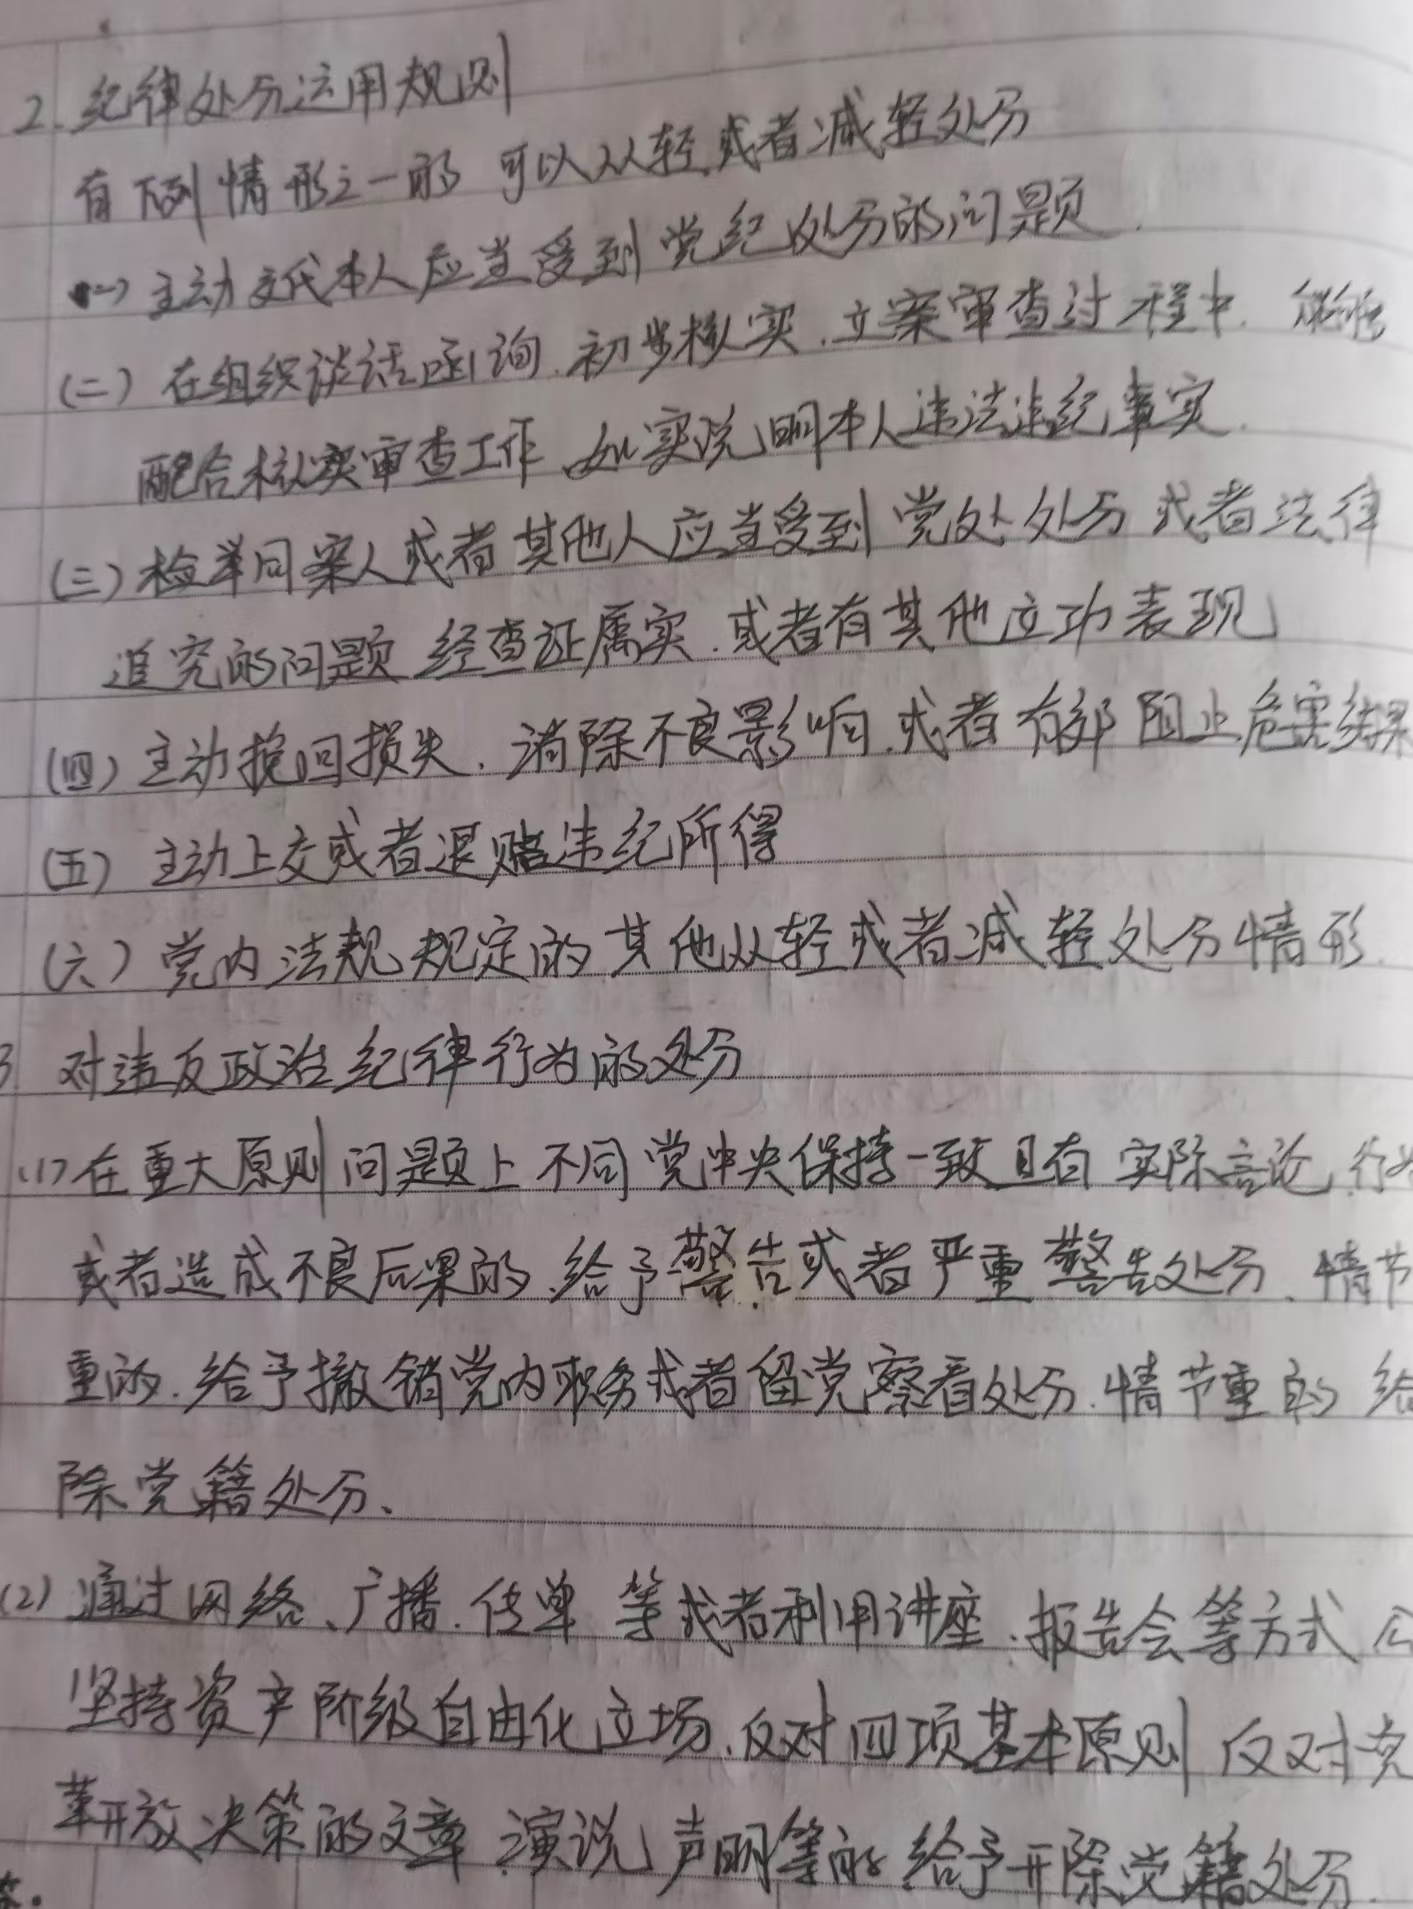 2. 纪律处分运用规则
有下列情形之一的 可以从轻或者减轻处分
(一) 主动交代本人应当受到党纪处分的问题.
(二) 在组织谈话函询.初步核实.立案审查过程中. 能够
配合核实审查工作 如实说明本人违法违纪事实.
(三) 检举同案人或者其他人应当受到党处处分或者法律
追究的问题 经查证属实.或者有其他立功表现
(四) 主动挽回损失.消除不良影响.或者有 阻止危害结果
(五) 主动上交或者退赔违纪所得
(六) 党内法规规定的其他从轻或者减轻处分情形.
3 对违反政治纪律行为的处分
(1) 在重大原则问题上不同党中央保持一致且有实际言论、行为
或者造成不良后果的.给予警告或者严重警告处分、情节
重的.给予撤销党内职务或者留党察看处分.情节重的 给
除党籍处分、
(2) 通过网络、广播.传单 等或者利用讲座.报告会等方式
坚持资产阶级自由化立场.反对四项基本原则 反对党
革开放决策的文章.演说、声明等的.给予开除党籍处分.